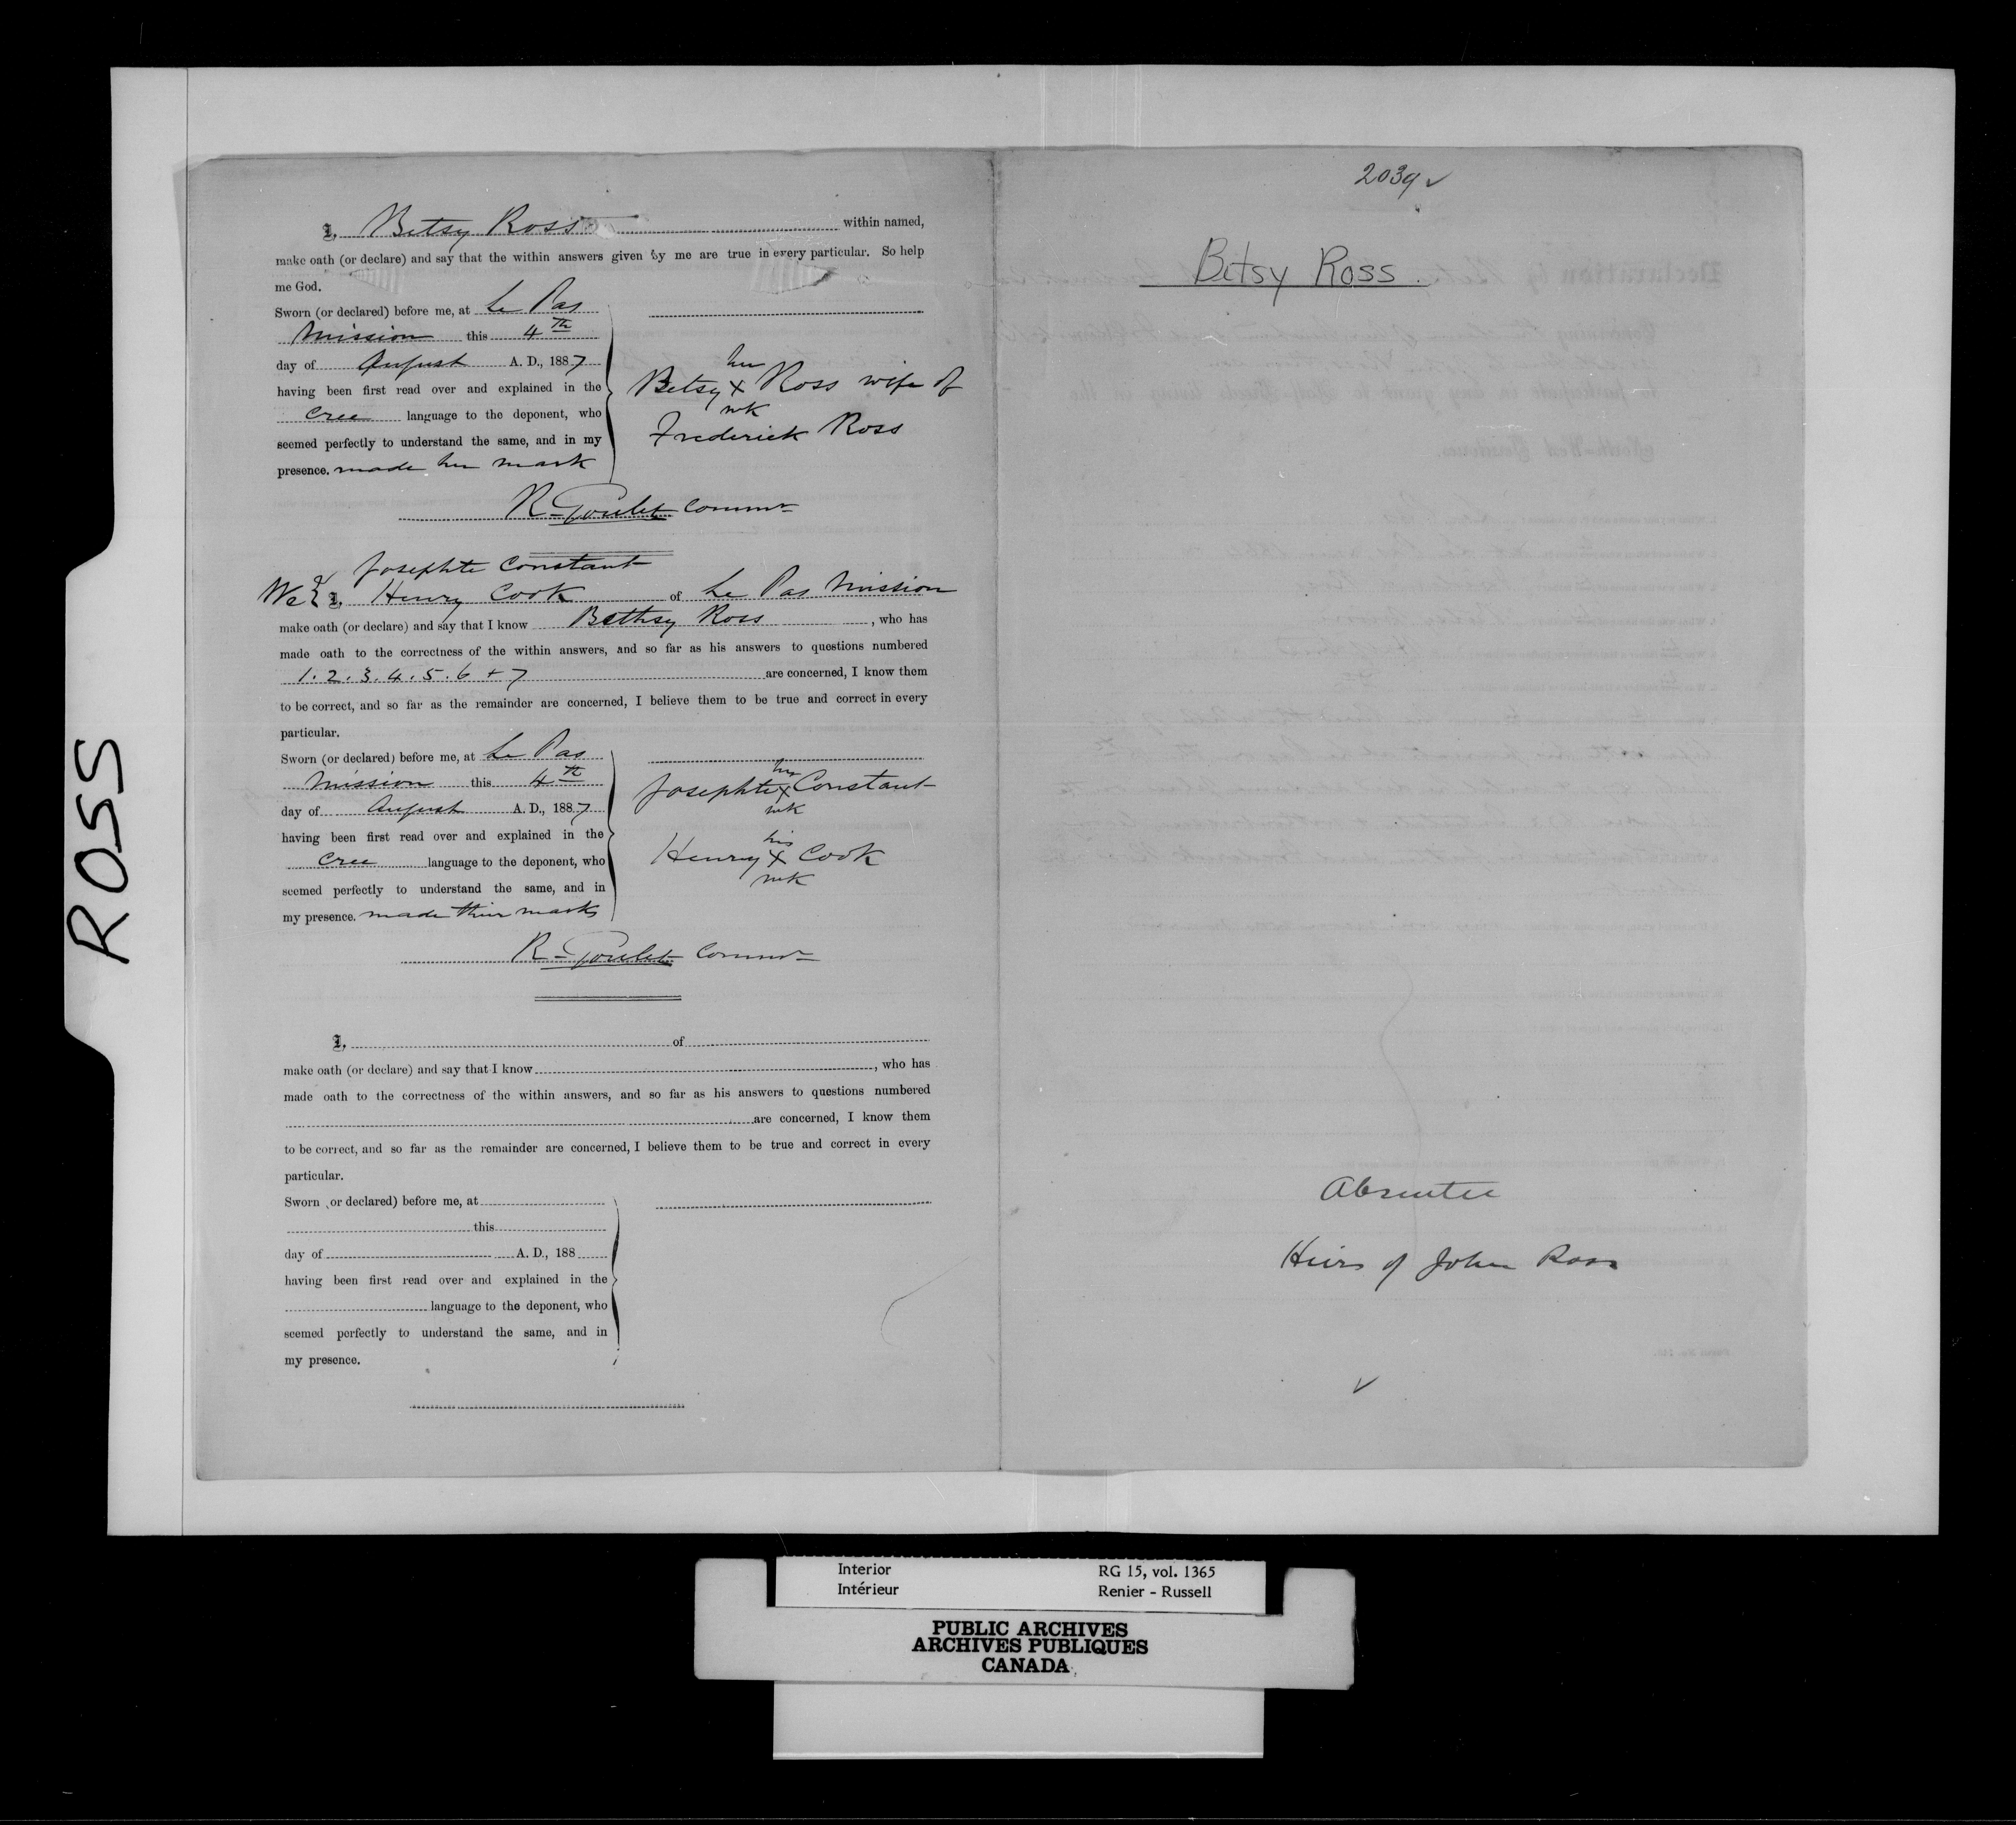 I, Betsy Ross within named,
make oath (or declare) and say that the within answers given by me are true in every particular. So help
me God.
Sworn (or declared) before me, at Le Pas
Mission this 4th
day of August A. D., 1887
having been first read over and explained in the
Cree language to the deponent, who
seemed perfectly to understand the same, and in my
presence. made her mark
her
Betsy x Ross wife of
mk
Frederick Ross
R. Goulet Commr
Josephte Constant
We & I, Henry Cook of Le Pas Mission
make oath (or declare) and say that I know Bethsy Ross, who has
made oath to the correctness of the within answers, and so far as his answers to questions numbered
1. 2. 3. 4. 5. 6 + 7 are concerned, I know them
to be correct, and so far as the remainder are concerned, I believe them to be true and correct in every
particular.
Sworn (or declared) before me, at Le Pas
Mission this 4th
day of August A. D., 1887
having been first read over and explained in the
Cree language to the deponent, who
seemed perfectly to understand the same, and in
my presence. made their marks
her
Josephte x Constant
mk
his
Henry x Cook
mk
R. Goulet Commr
I, of
make oath (or declare) and say that I know , who has
made oath to the correctness of the within answers, and so far as his answers to questions numbered
are concerned, I know them
to be correct, and so far as the remainder are concerned, I believe them to be true and correct in every
particular.
Sworn or declared) before me, at
this
day of A. D., 188
having been first read over and explained in the
language to the deponent, who
seemed perfectly to understand the same, and in
my presence.
2039 ✓
Betsy Ross.
Absentee
Heirs of John Ross
✓
ROSS
Interior RG 15, vol. 1365
Intérieur Renier - Russell
PUBLIC ARCHIVES
ARCHIVES PUBLIQUES
CANADA